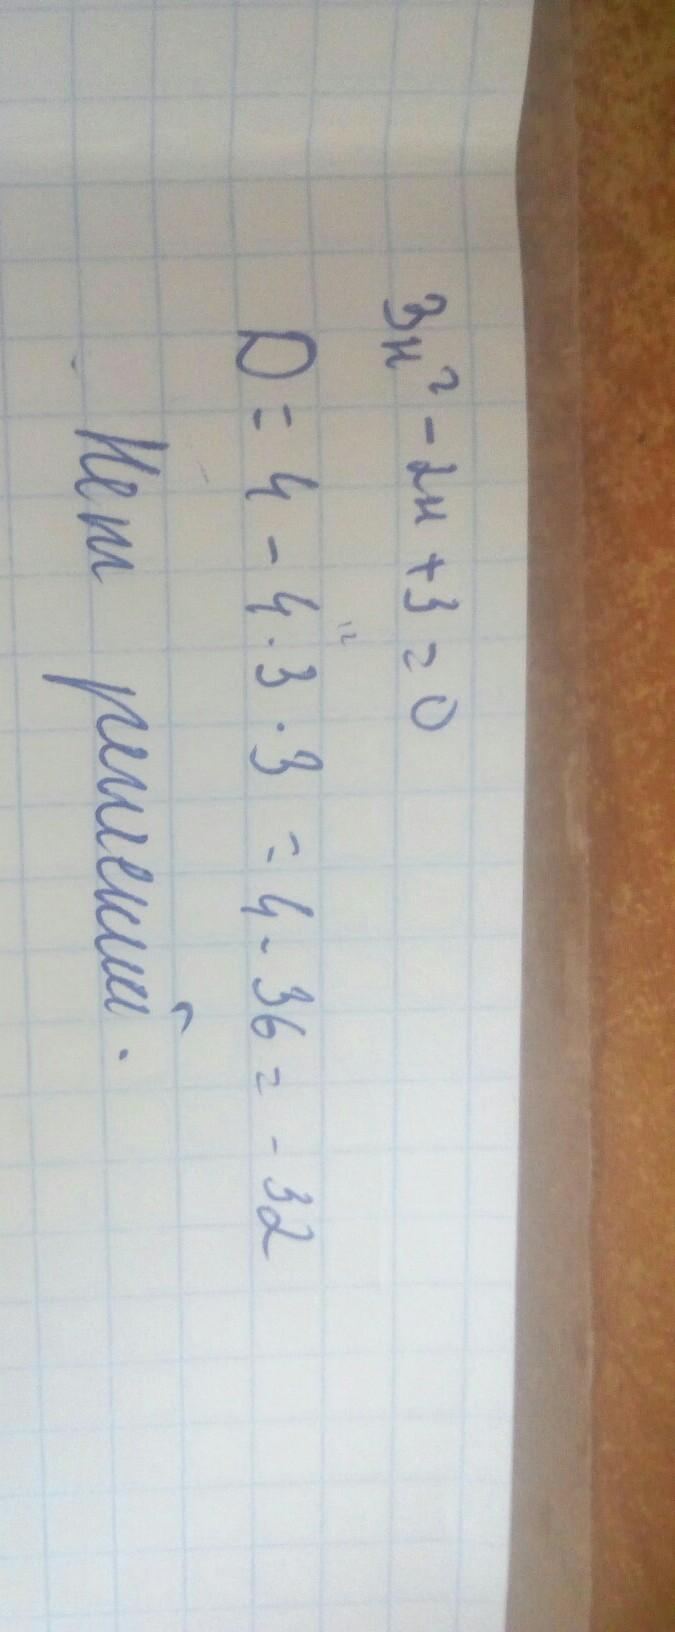 3x² - 2x + 3 = 0
D = 4 - 4 · 3 · 3 = 4 - 36 = - 32
Нет решений.